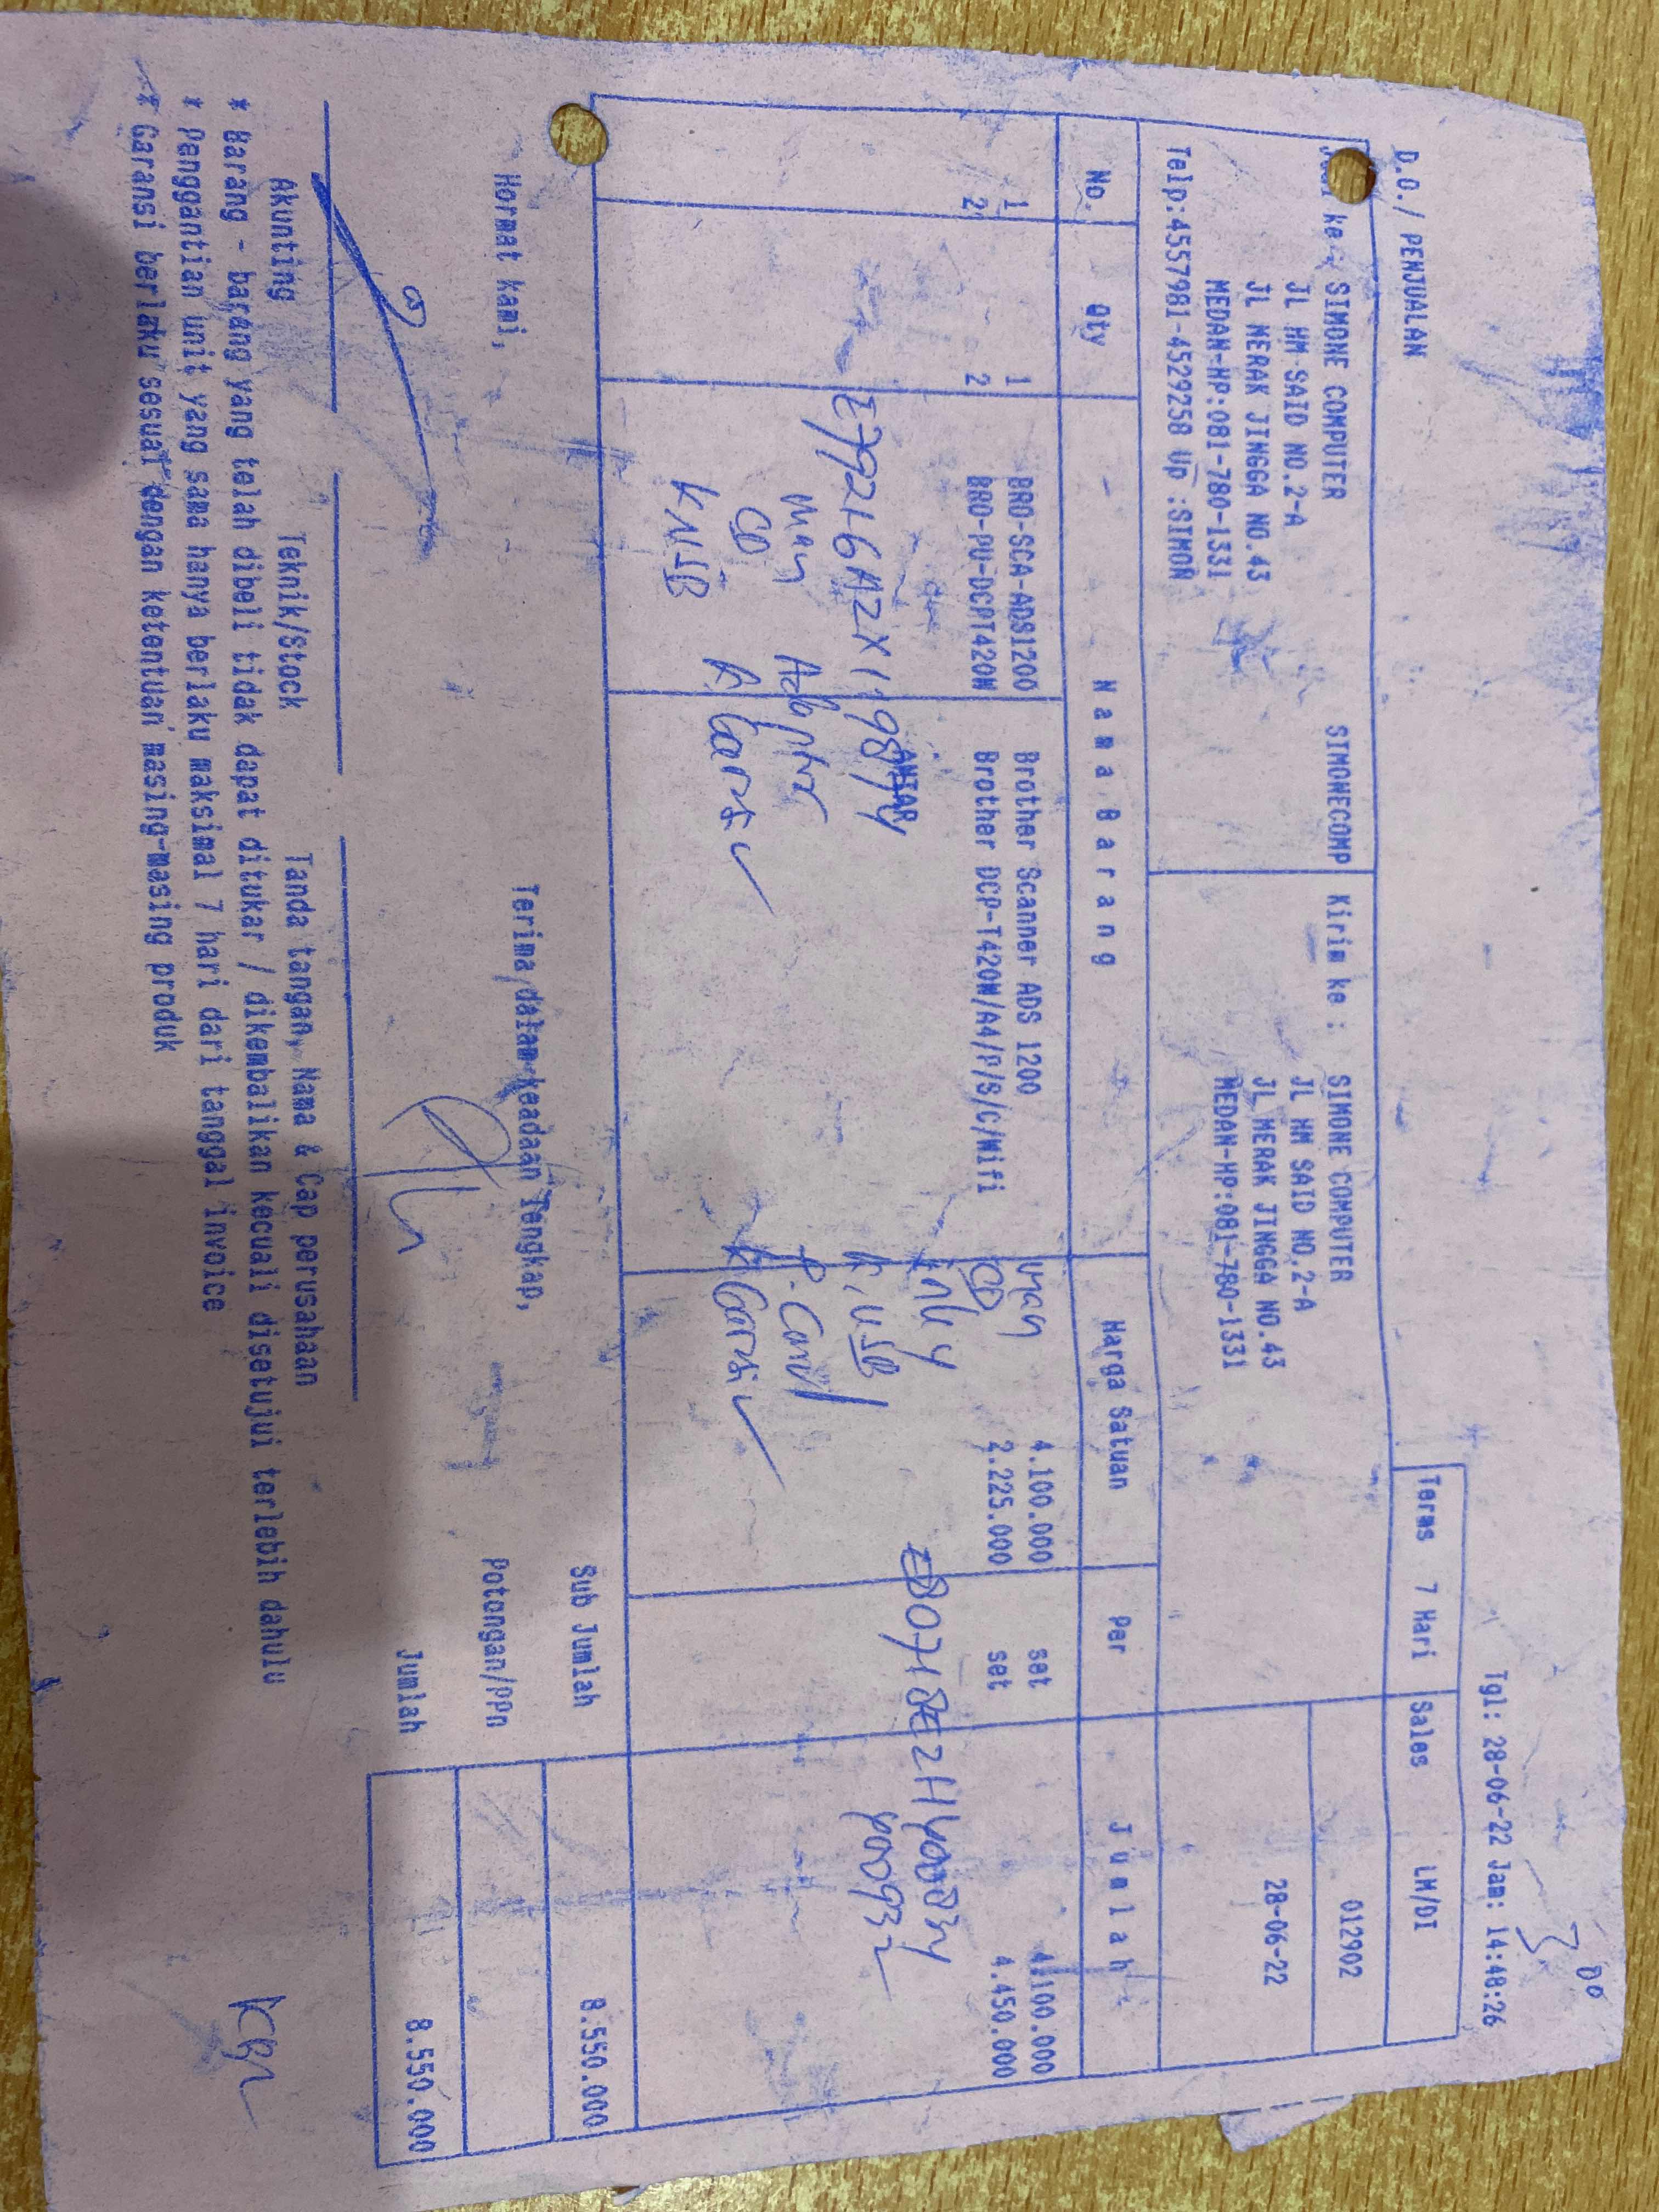 D.O./ PENJUALAN
Tgl: 28-06-22 Jam: 14:48:26
Terms 7 Hari Sales LM/DI
ke : SIMONE COMPUTER SIMONECOMP
JL HM SAID NO.2-A
JL MERAK JINGGA NO.43
MEDAN-HP:081-780-1331
Telp:4557981-4529258 Up :SIMON
Kirim ke : SIMONE COMPUTER
JL HM SAID NO.2-A
JL MERAK JINGGA NO.43
MEDAN-HP:081-780-1331
012902
28-06-22
No. Qty Nama Barang Harga Satuan Per Jumlah
1 1 BRO-SCA-ADS1200 Brother Scanner ADS 1200 4.100.000 set 4.100.000
2 2 BRO-PU-DCPT420W Brother DCP-T420W/A4/P/S/C/Wifi 2.225.000 set 4.450.000
ANTAR
Man Adaptor
CD K. Garansi
K USB
Man
CD
K. USB
Garansi
Hormat kami,
Terima dalam keadaan lengkap,
Sub Jumlah 8.550.000
Potongan/PPn
Jumlah 8.550.000
Akunting Teknik/Stock Tanda tangan, Nama & Cap perusahaan
* Barang - barang yang telah dibeli tidak dapat ditukar / dikembalikan kecuali disetujui terlebih dahulu
* Penggantian unit yang sama hanya berlaku maksimal 7 hari dari tanggal invoice
* Garansi berlaku sesuai dengan ketentuan masing-masing produk